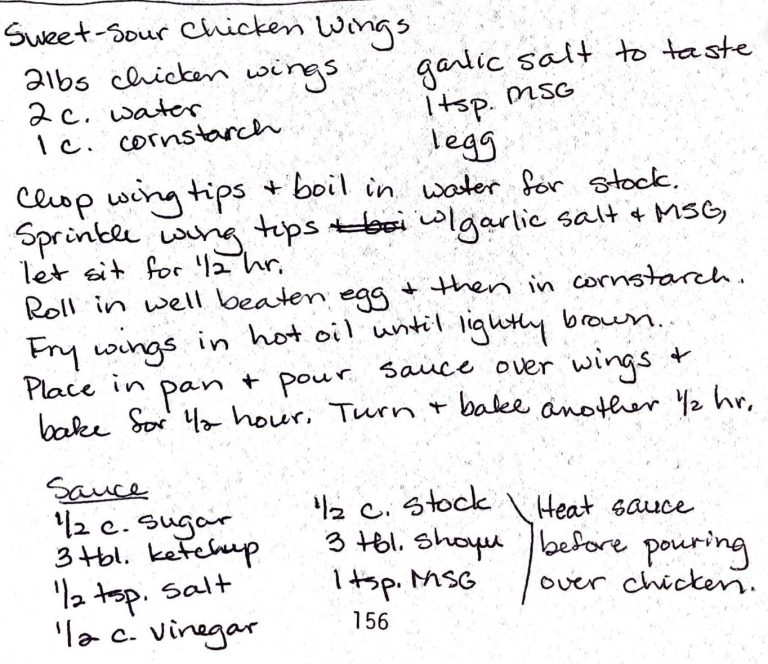 Sweet-Sour Chicken Wings
2lbs chicken wings
2 c. water
1 c. cornstarch
garlic salt to taste
1 tsp. MSG
1 egg
Chop wing tips + boil in water for stock.
Sprinkle wing tips + boi w/garlic salt + MSG,
let sit for 1/2 hr.
Roll in well beaten egg + then in cornstarch.
Fry wings in hot oil until lightly brown.
Place in pan + pour sauce over wings +
bake for 1/2 hour. Turn + bake another 1/2 hr.
Sauce
1/2 c. sugar
3 tbl. ketchup
1/2 tsp. salt
1/2 c. vinegar
1/2 c. stock
3 tbl. shoyu
1 tsp. MSG
Heat sauce
before pouring
over chicken.
156